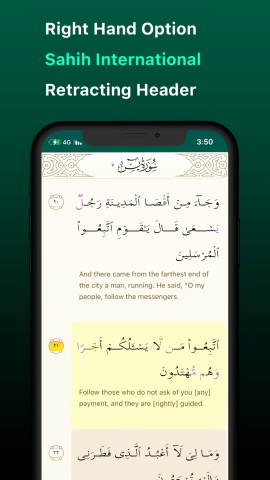 Right Hand Option
Sahih International
Retracting Header
4G
3:50
سورة يس
٢٠
وَجَآءَ مِنْ أَقْصَا ٱلْمَدِينَةِ رَجُلٌ
يَسْعَىٰ قَالَ يَـٰقَوْمِ ٱتَّبِعُوا۟
ٱلْمُرْسَلِينَ
And there came from the farthest end of
the city a man, running. He said, "O my
people, follow the messengers.
٢١
ٱتَّبِعُوا۟ مَن لَّا يَسْـَٔلُكُمْ أَجْرًا
وَهُم مُّهْتَدُونَ
Follow those who do not ask of you [any]
payment, and they are [rightly] guided.
٢٢
وَمَا لِىَ لَآ أَعْبُدُ ٱلَّذِى فَطَرَنِى
وَإِلَيْهِ تُرْجَعُونَ